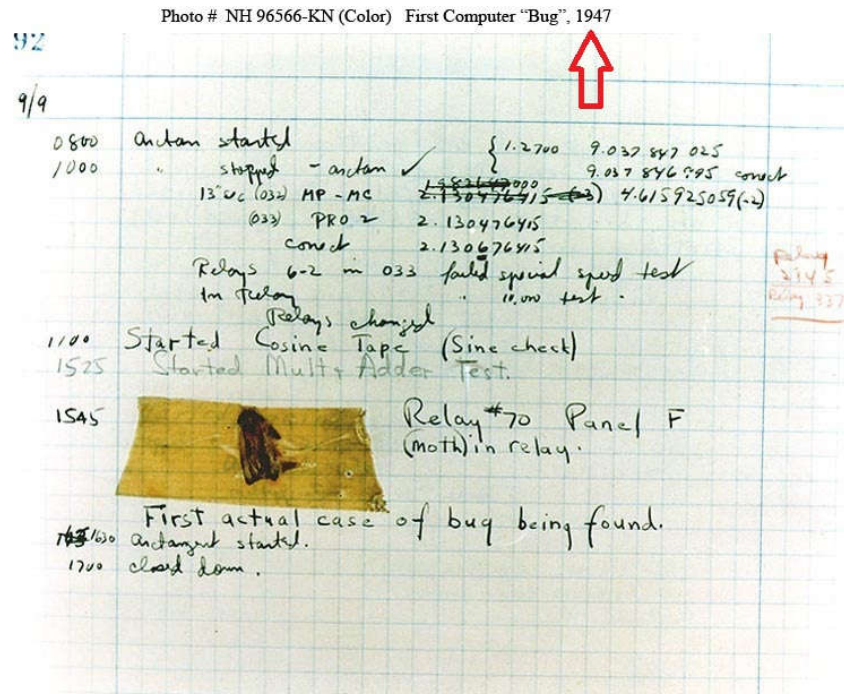 Photo # NH 96566-KN (Color) First Computer “Bug”, 1947
92
9/9
0800 arctan started
1000 " stopped - arctan ✓
{ 1.2700 9.037 847 025
9.037 846 995 correct
13"uc (032) MP-MC 2.130476415 4.615925059(-2)
(033) PRO 2 2.130476415
correct 2.130676415
Relays 6-2 in 033 failed special speed test
in Relay " 10,000 test.
Relay
Relays changed
1100 Started Cosine Tape (Sine check)
1525 Started Mult+ Adder Test.
1545 Relay #70 Panel F
(moth) in relay.
First actual case of bug being found.
1630 arctangent started.
1700 closed down.